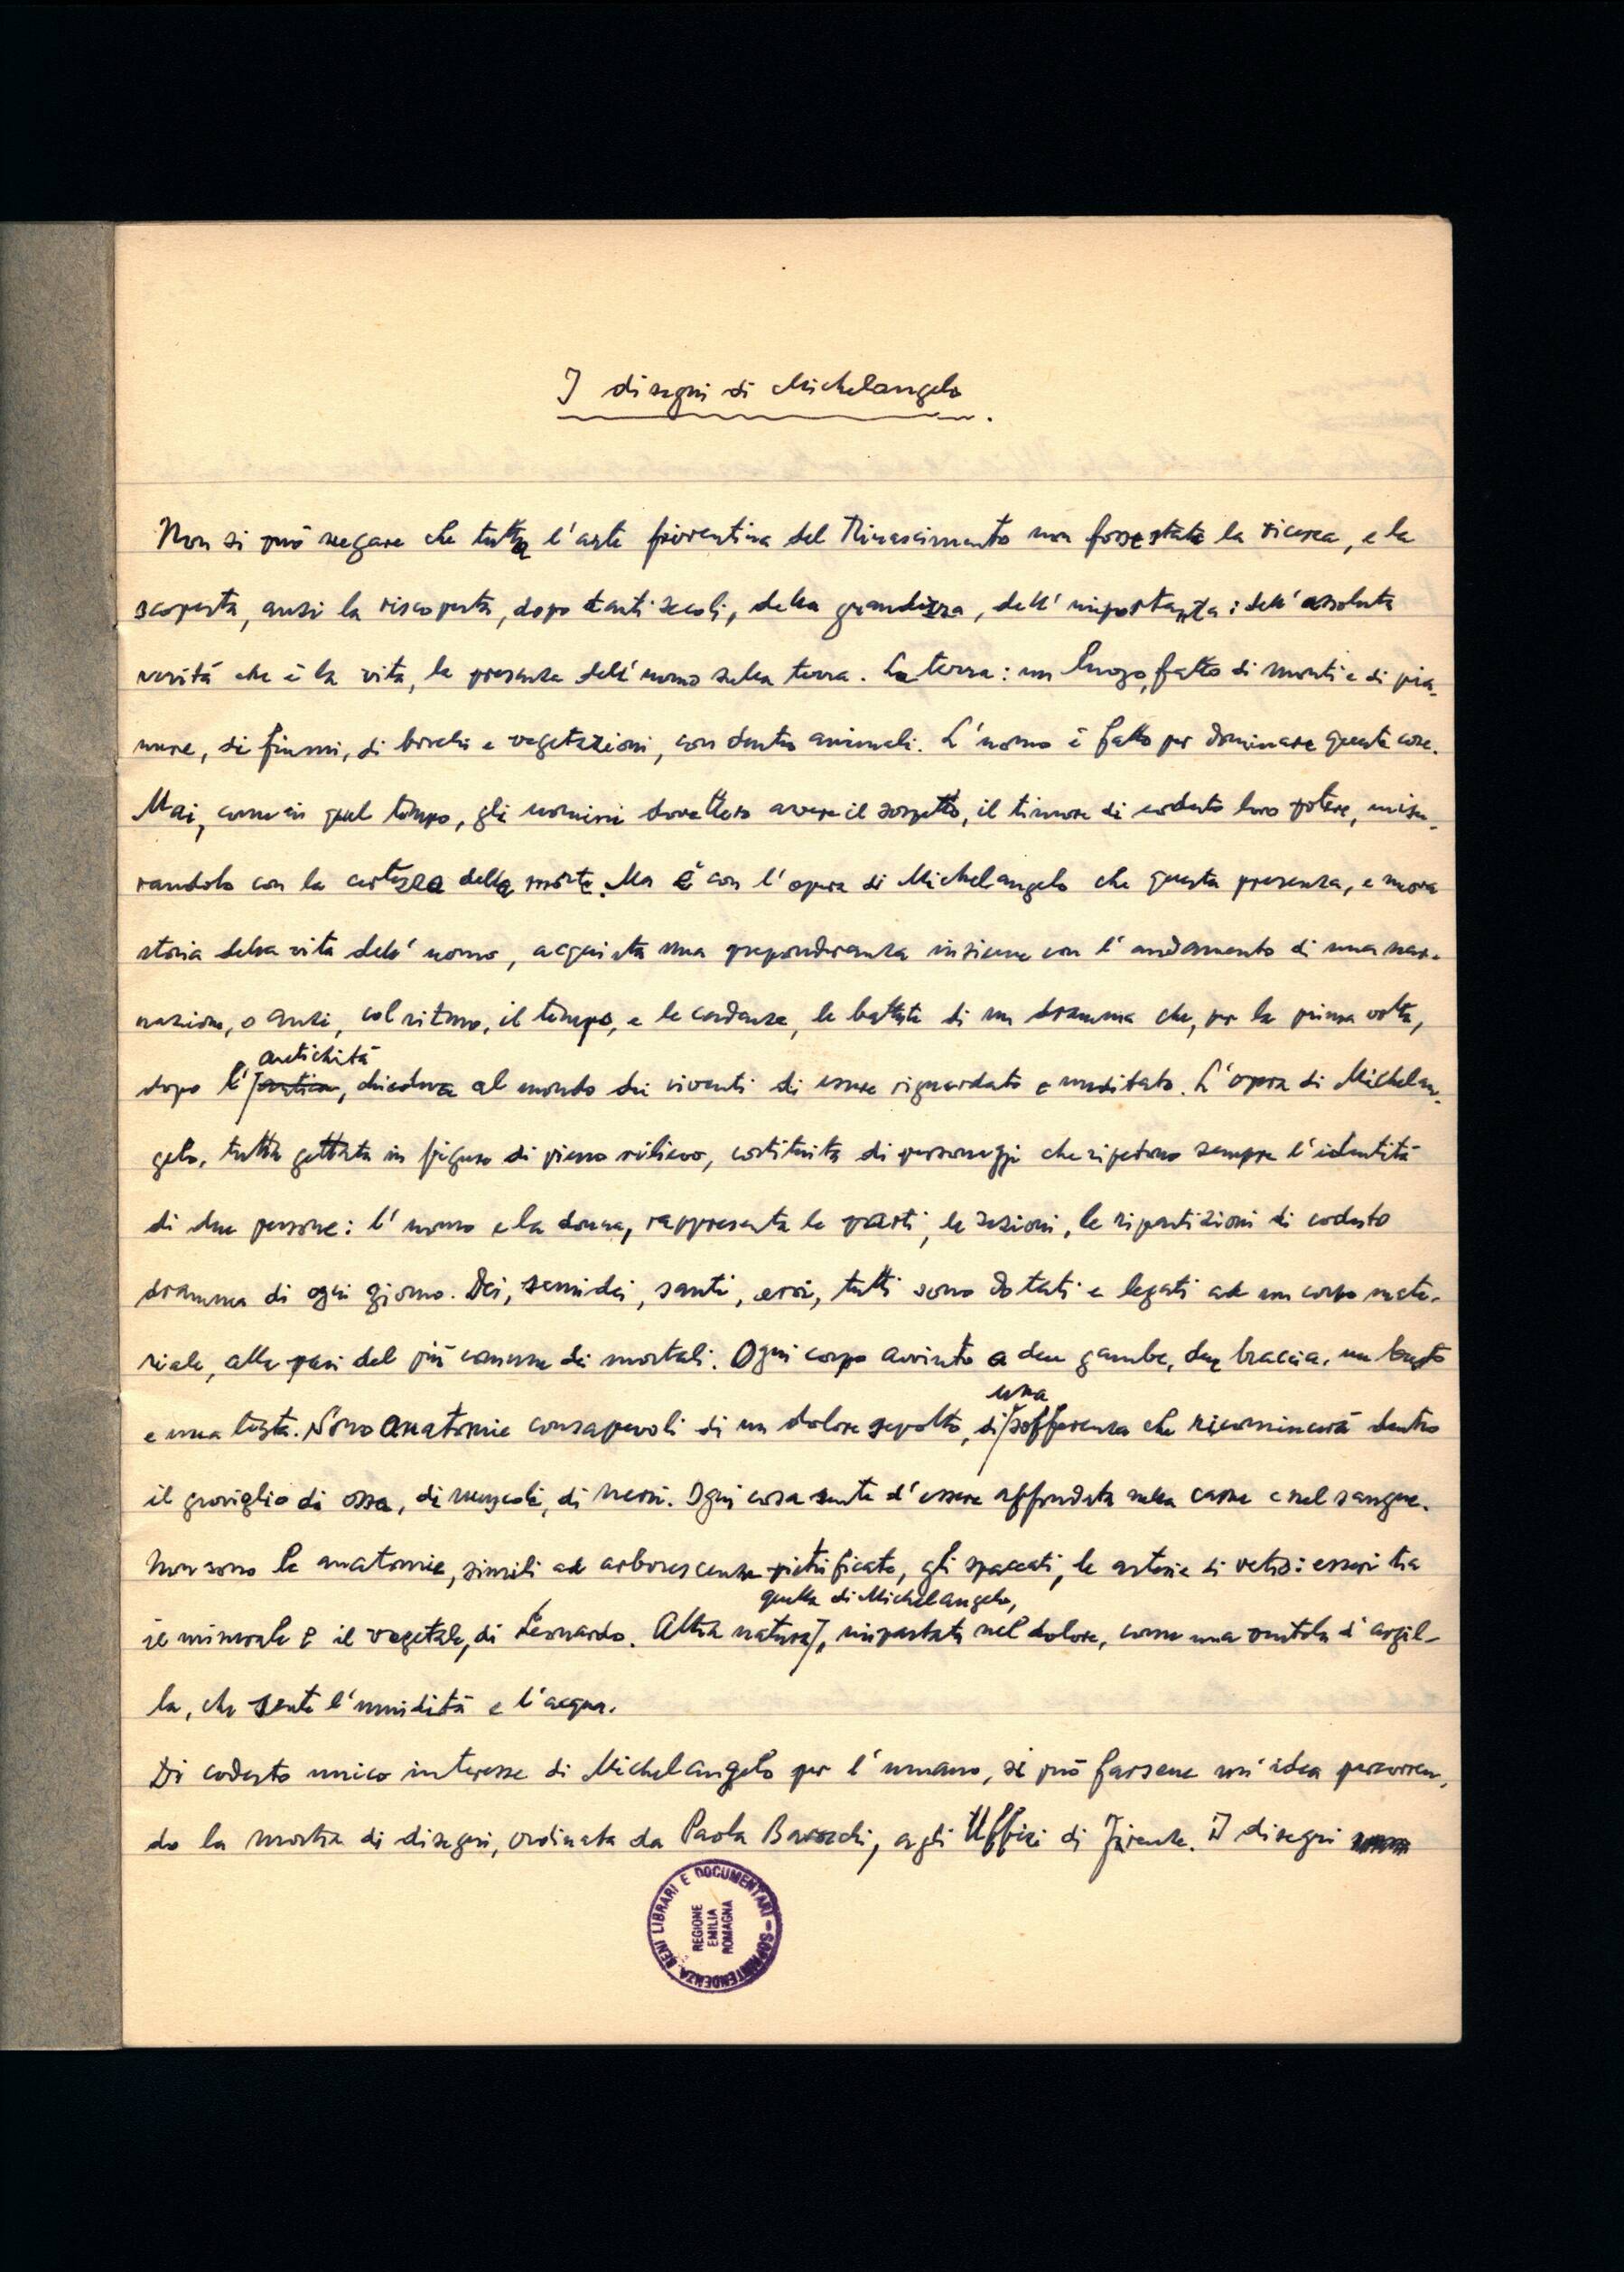 I disegni di Michelangelo
Non si può negare che tutta l'arte fiorentina del Rinascimento non fosse stata la ricerca, e la
scoperta, anzi la riscoperta, dopo tanti secoli, della grandezza, dell'importanza: dell'assoluta
verità che è la vita, la presenza dell'uomo sulla terra. La terra: un luogo, fatto di monti e di pia-
nure, di fiumi, di boschi e vegetazioni, con dentro animali. L'uomo è fatto per dominare queste cose.
Mai, come in quel tempo, gli uomini dovettero avere il sospetto, il timore di codesto loro potere, misu-
randolo con la certezza della morte. Ma è con l'opera di Michelangelo che questa presenza, e nuova
storia della vita dell'uomo, acquista una preponderanza insieme con l'andamento di una nar-
razione, o anzi, col ritmo, il tempo, e le cadenze, le battute di un dramma che, per la prima volta,
antichità
dopo l', chiedeva al mondo dei viventi di essere riguardato e meditato. L'opera di Michelan-
gelo, tutta gettata in figure di pieno rilievo, costituita di personaggi che ripetono sempre l'identità
di due persone: l'uomo e la donna, rappresenta le parti, le sezioni, le ripartizioni di codesto
dramma di ogni giorno. Dei, semidei, santi, eroi, tutti sono dotati e legati ad un corpo mate-
riale, alla pari del più comune dei mortali. Ogni corpo avvinto a due gambe, due braccia, un busto
una
e una testa. Sono anatomie consapevoli di un dolore sepolto, di sofferenza che ricomincerà dentro
il groviglio di ossa, di muscoli, di nervi. Ogni cosa sente d'essere affondata nella carne e nel sangue.
Non sono le anatomie, simili ad arborescenze pietrificate, gli spaccati, le arterie di vetro: esseri tra
quella di Michelangelo,
il minerale e il vegetale, di Leonardo. Altra natura, impastata nel dolore, come una ciotola d'argil-
la, che sente l'umidità e l'acqua.
Di codesto unico interesse di Michelangelo per l'umano, si può farsene un'idea percorren-
do la mostra di disegni, ordinata da Paola Barocchi, agli Uffizi di Firenze. I disegni
SOPRINTENDENZA BENI LIBRARI E DOCUMENTARI -
REGIONE
EMILIA
ROMAGNA